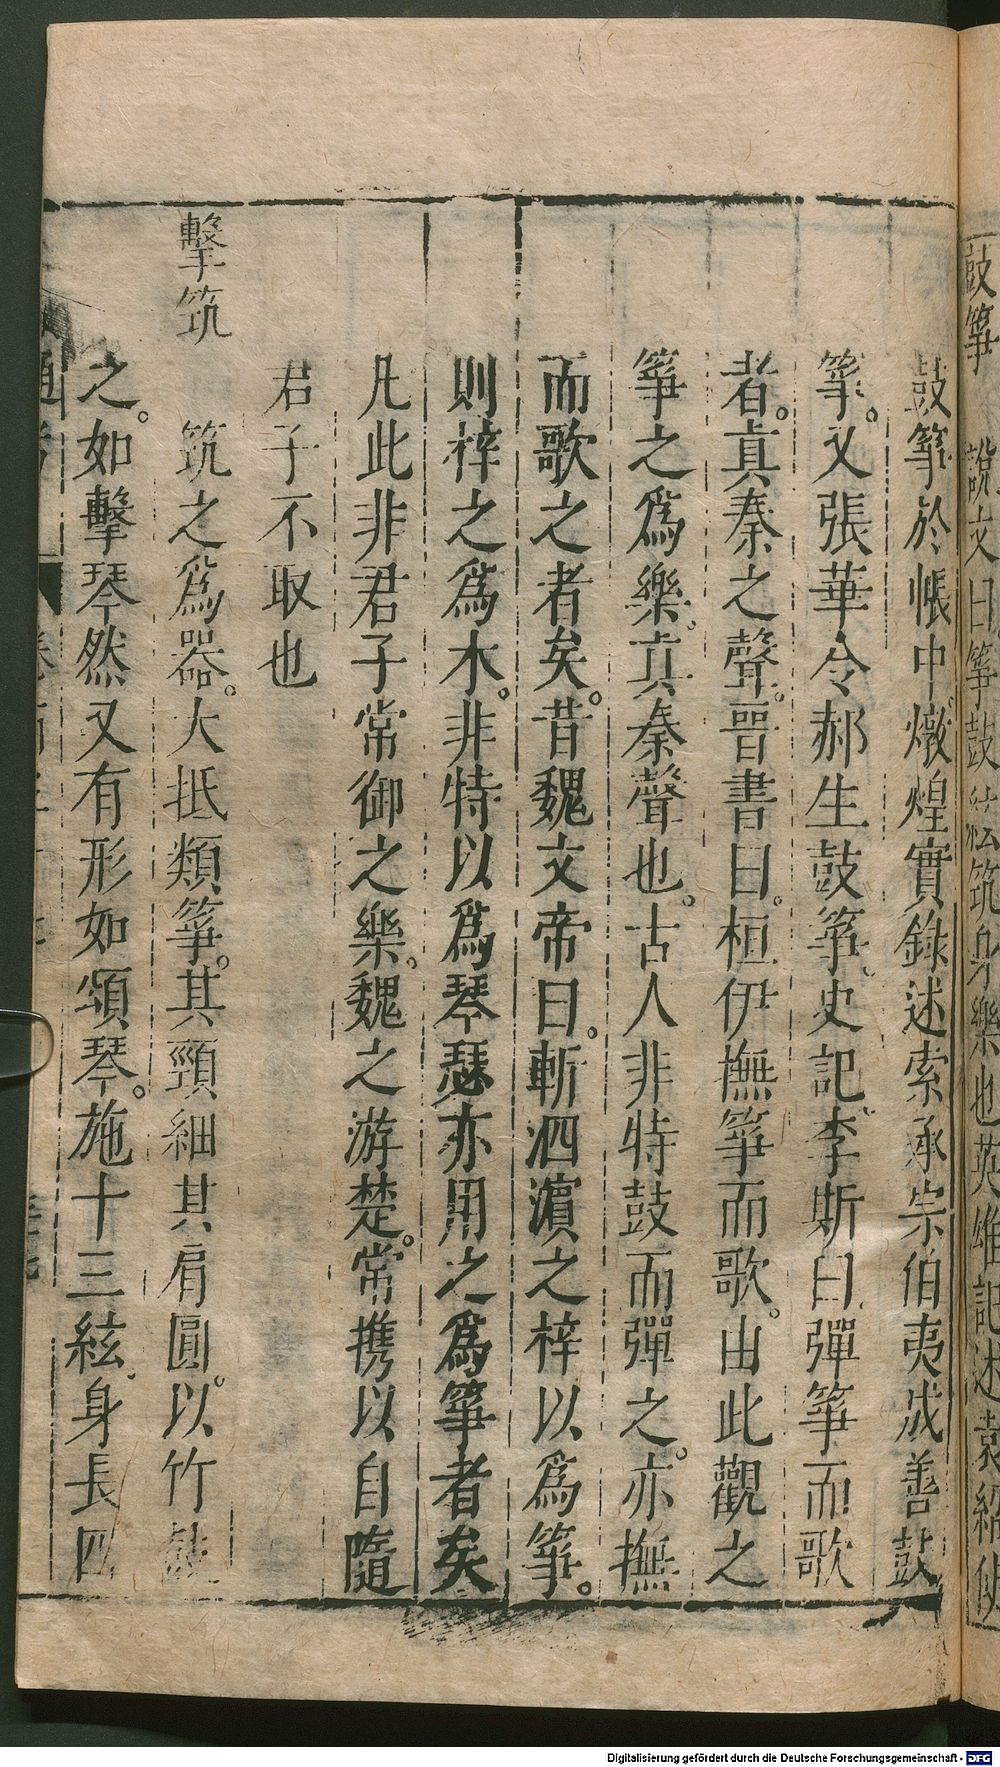 鼓箏 說文曰箏鼓絃筑身樂也英雄記述袁紹使
鼓箏於帳中燉煌實錄述索承宗伯夷成善鼓
箏。又張華令郝生鼓箏。史記李斯曰彈箏而歌
者。真秦之聲。晉書曰。桓伊撫箏而歌。由此觀之
箏之爲樂。真秦聲也。古人非特鼓而彈之。亦撫
而歌之者矣。昔魏文帝曰。斬泗濵之梓以爲箏。
則梓之爲木。非特以爲琴瑟亦用之爲箏者矣
凡此非君子常御之樂。魏之游楚。常携以自隨
君子不取也
擊筑 筑之爲器。大抵類箏。其頸細其肩圓。以竹鼓
之。如擊琴然又有形如頌琴。施十三絃。身長四
通考 卷
Digitalisierung gefördert durch die Deutsche Forschungsgemeinschaft - DFG